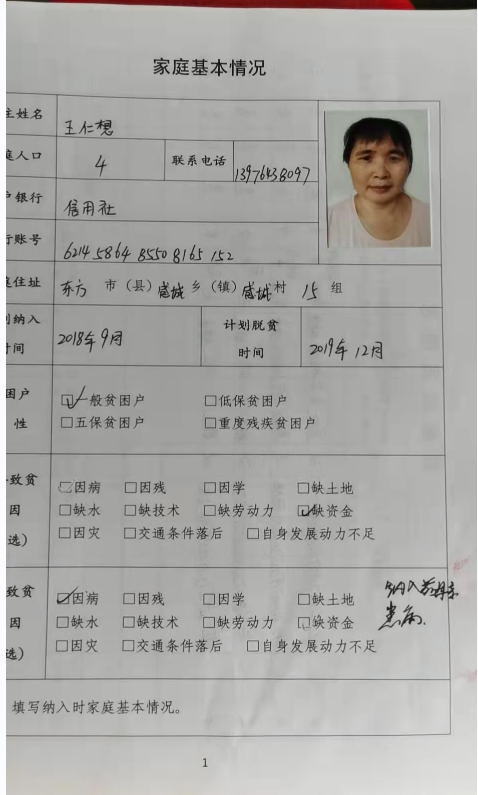 家庭基本情况
主姓名 王仁想
庭人口 4 联系电话 13976438097
户银行 信用社
行账号 6214 5864 8550 8165 152
庭住址 东方 市（县）感城 乡（镇）感城 村 15 组
划纳入时间 2018年9月 计划脱贫时间 2019年12月
困户 □一般贫困户 □低保贫困户
性 □五保贫困户 □重度残疾贫困户
致贫 □因病 □因残 □因学 □缺土地
因 □缺水 □缺技术 □缺劳动力 □缺资金
选） □因灾 □交通条件落后 □自身发展动力不足
致贫 □因病 □因残 □因学 □缺土地 纳入前
因 □缺水 □缺技术 □缺劳动力 □缺资金 患病
选） □因灾 □交通条件落后 □自身发展动力不足
填写纳入时家庭基本情况。
1